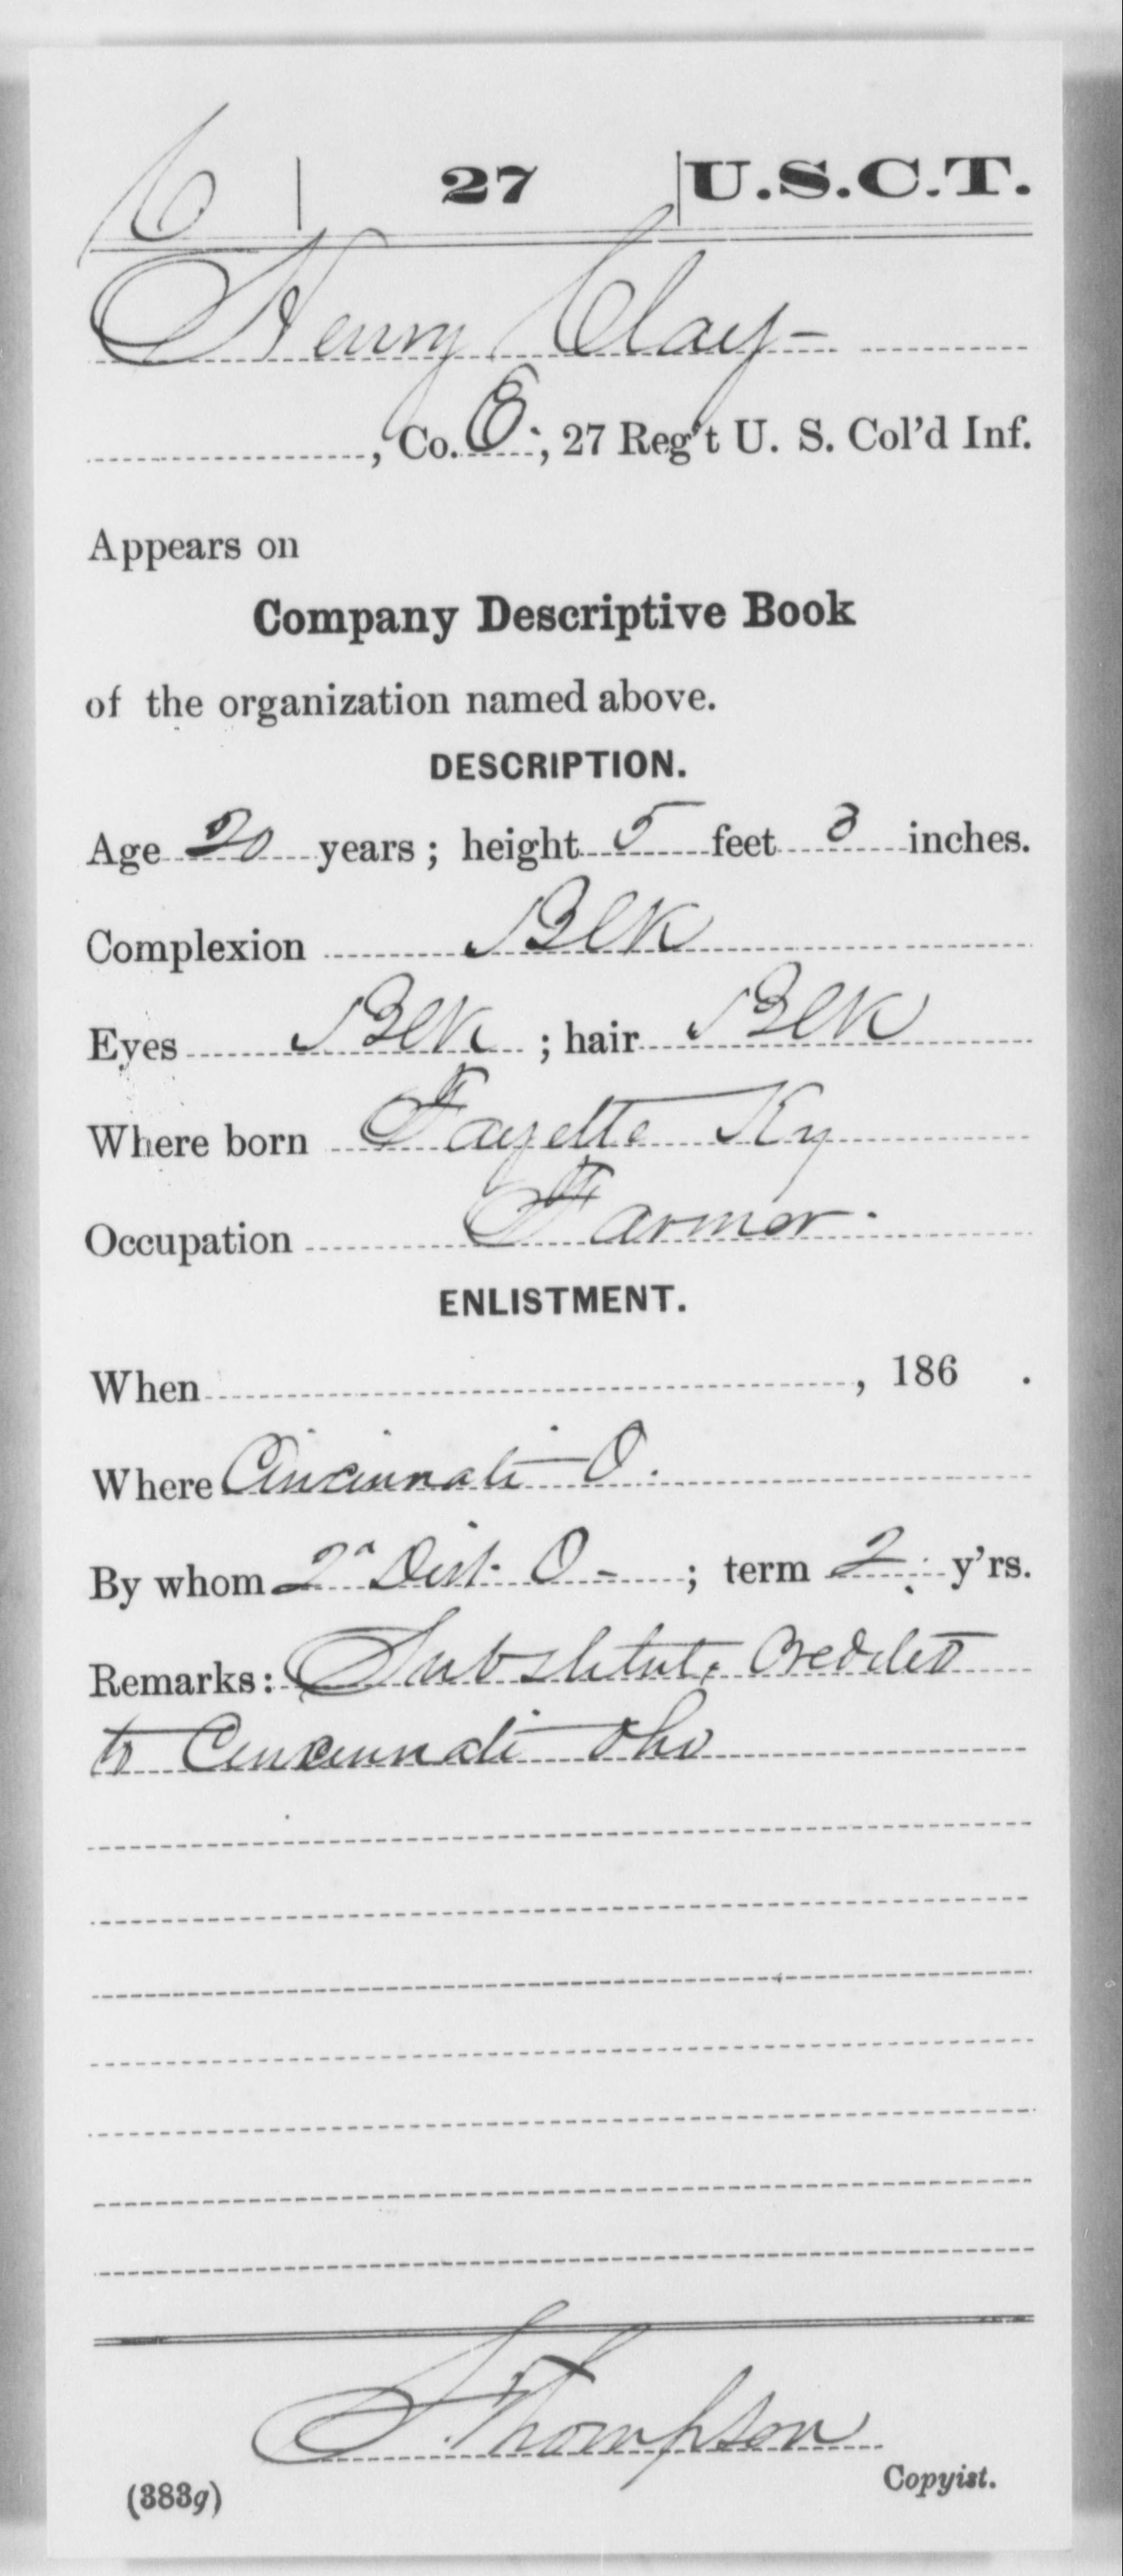 C | 27 | U.S.C.T.
Henry Clay
, Co. E; 27 Reg't U. S. Col'd Inf.
Appears on
Company Descriptive Book
of the organization named above.
DESCRIPTION.
Age 20 years; height 5 feet 3 inches.
Complexion Blk
Eyes Blk; hair Blk
Where born Fayette Ky
Occupation Farmer.
ENLISTMENT.
When , 186 .
Where Cincinnati O.
By whom 2d Dist. O -; term 2 y'rs.
Remarks: Substitute Credited
to Cincinnati Oho
Thompson
Copyist.
(383g)